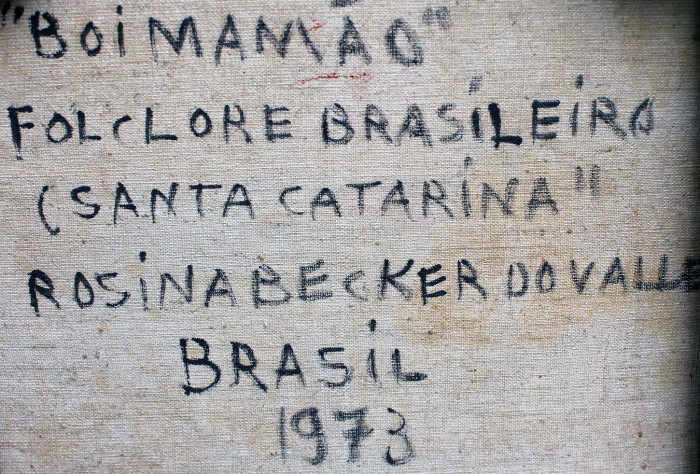 "BOi MAMÃO"
FOLCLORE BRASiLEiRO
(SANTA CATARiNA"
ROSiNA BECKER DO VALLE
BRASiL
1973